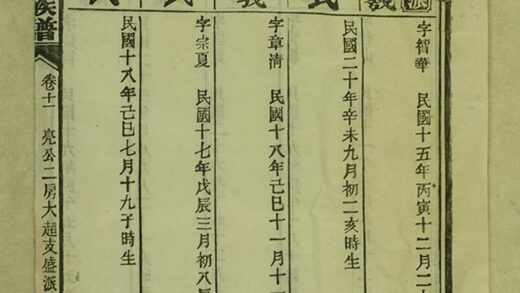 字智華 民國十五年丙寅十二月二十
民國二十年辛未九月初二亥時生
字章清 民國十八年己巳十一月十一
字宗夏 民國十七年戊辰三月初八辰
民國十八年己巳七月十九子時生
族譜
卷十一 亮公二房大超支盛派